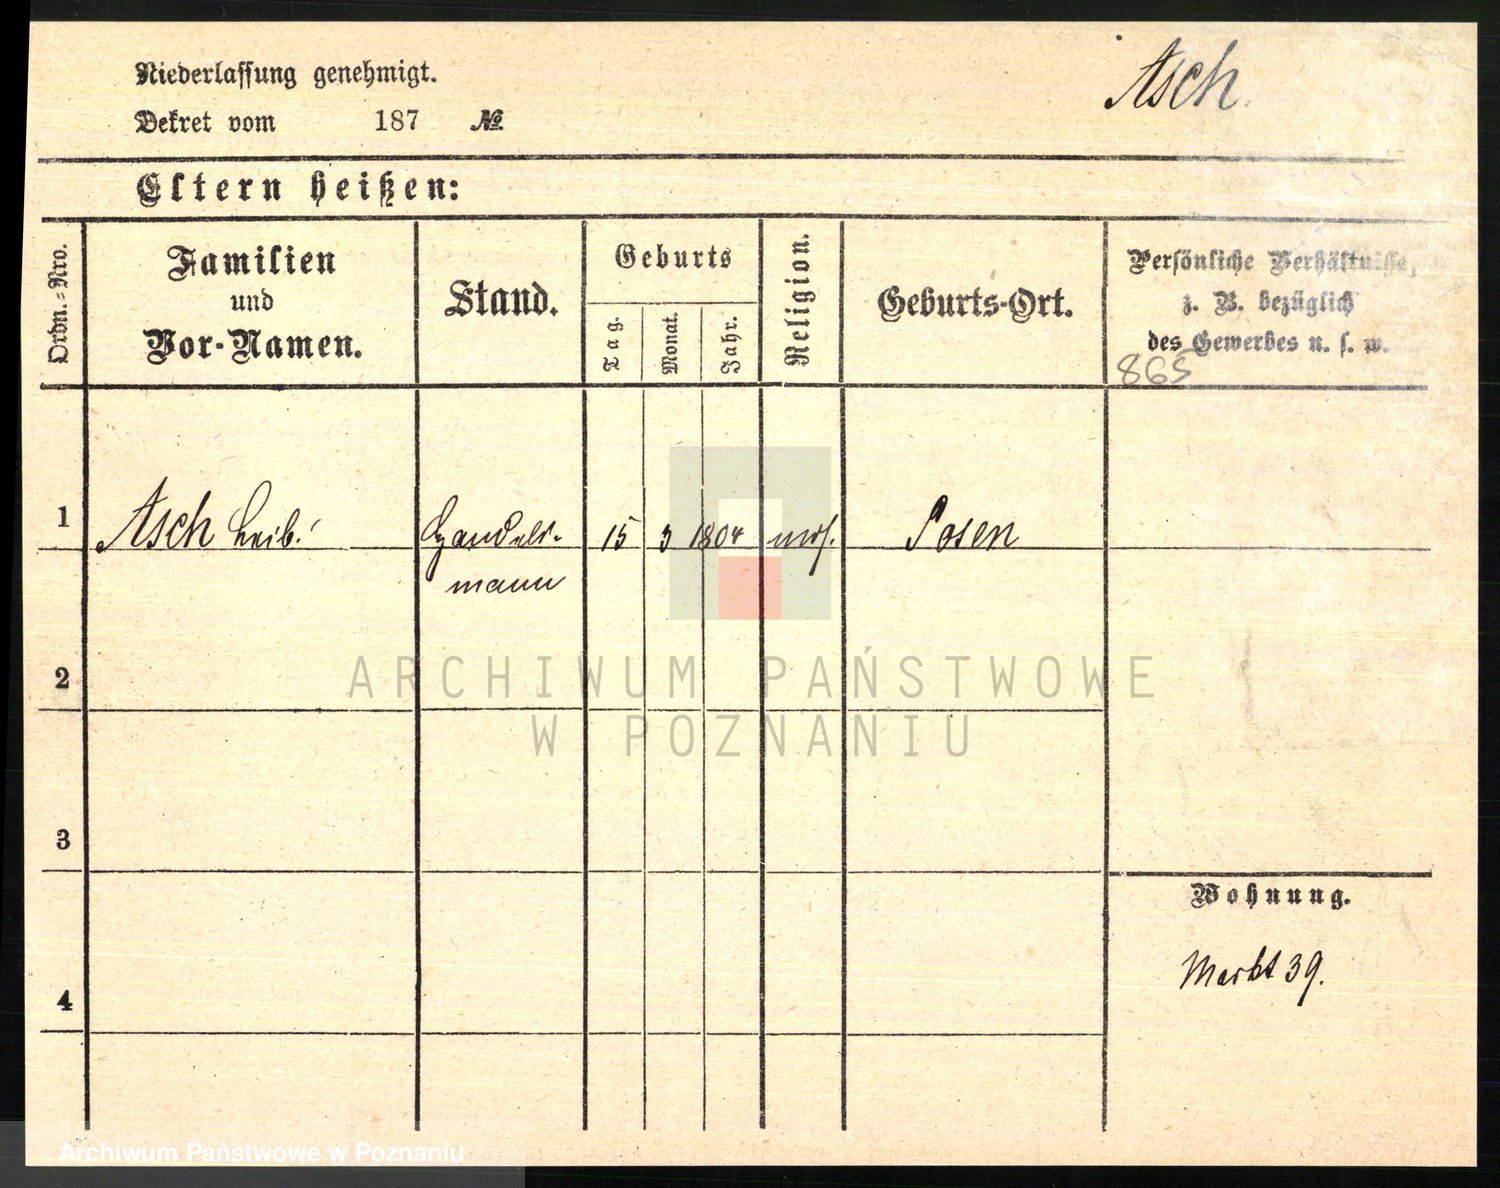 Niederlassung genehmigt.
Asch.
Dekret vom 187 №
Eltern heißen:
Ordn.-Nro.
Familien
und
Vor-Namen.
Stand.
Geburts
Tag.
Monat.
Jahr.
Religion.
Geburts-Ort.
Persönliche Verhältnisse,
z. B. bezüglich
des Gewerbes u. s. w.
865
1 Asch Leib. Handels- 15 3 1804 mos. Posen
mann
2
ARCHIWUM PAŃSTWOWE
W POZNANIU
3
Wohnung.
Markt 39.
4
Archiwum Państwowe w Poznaniu